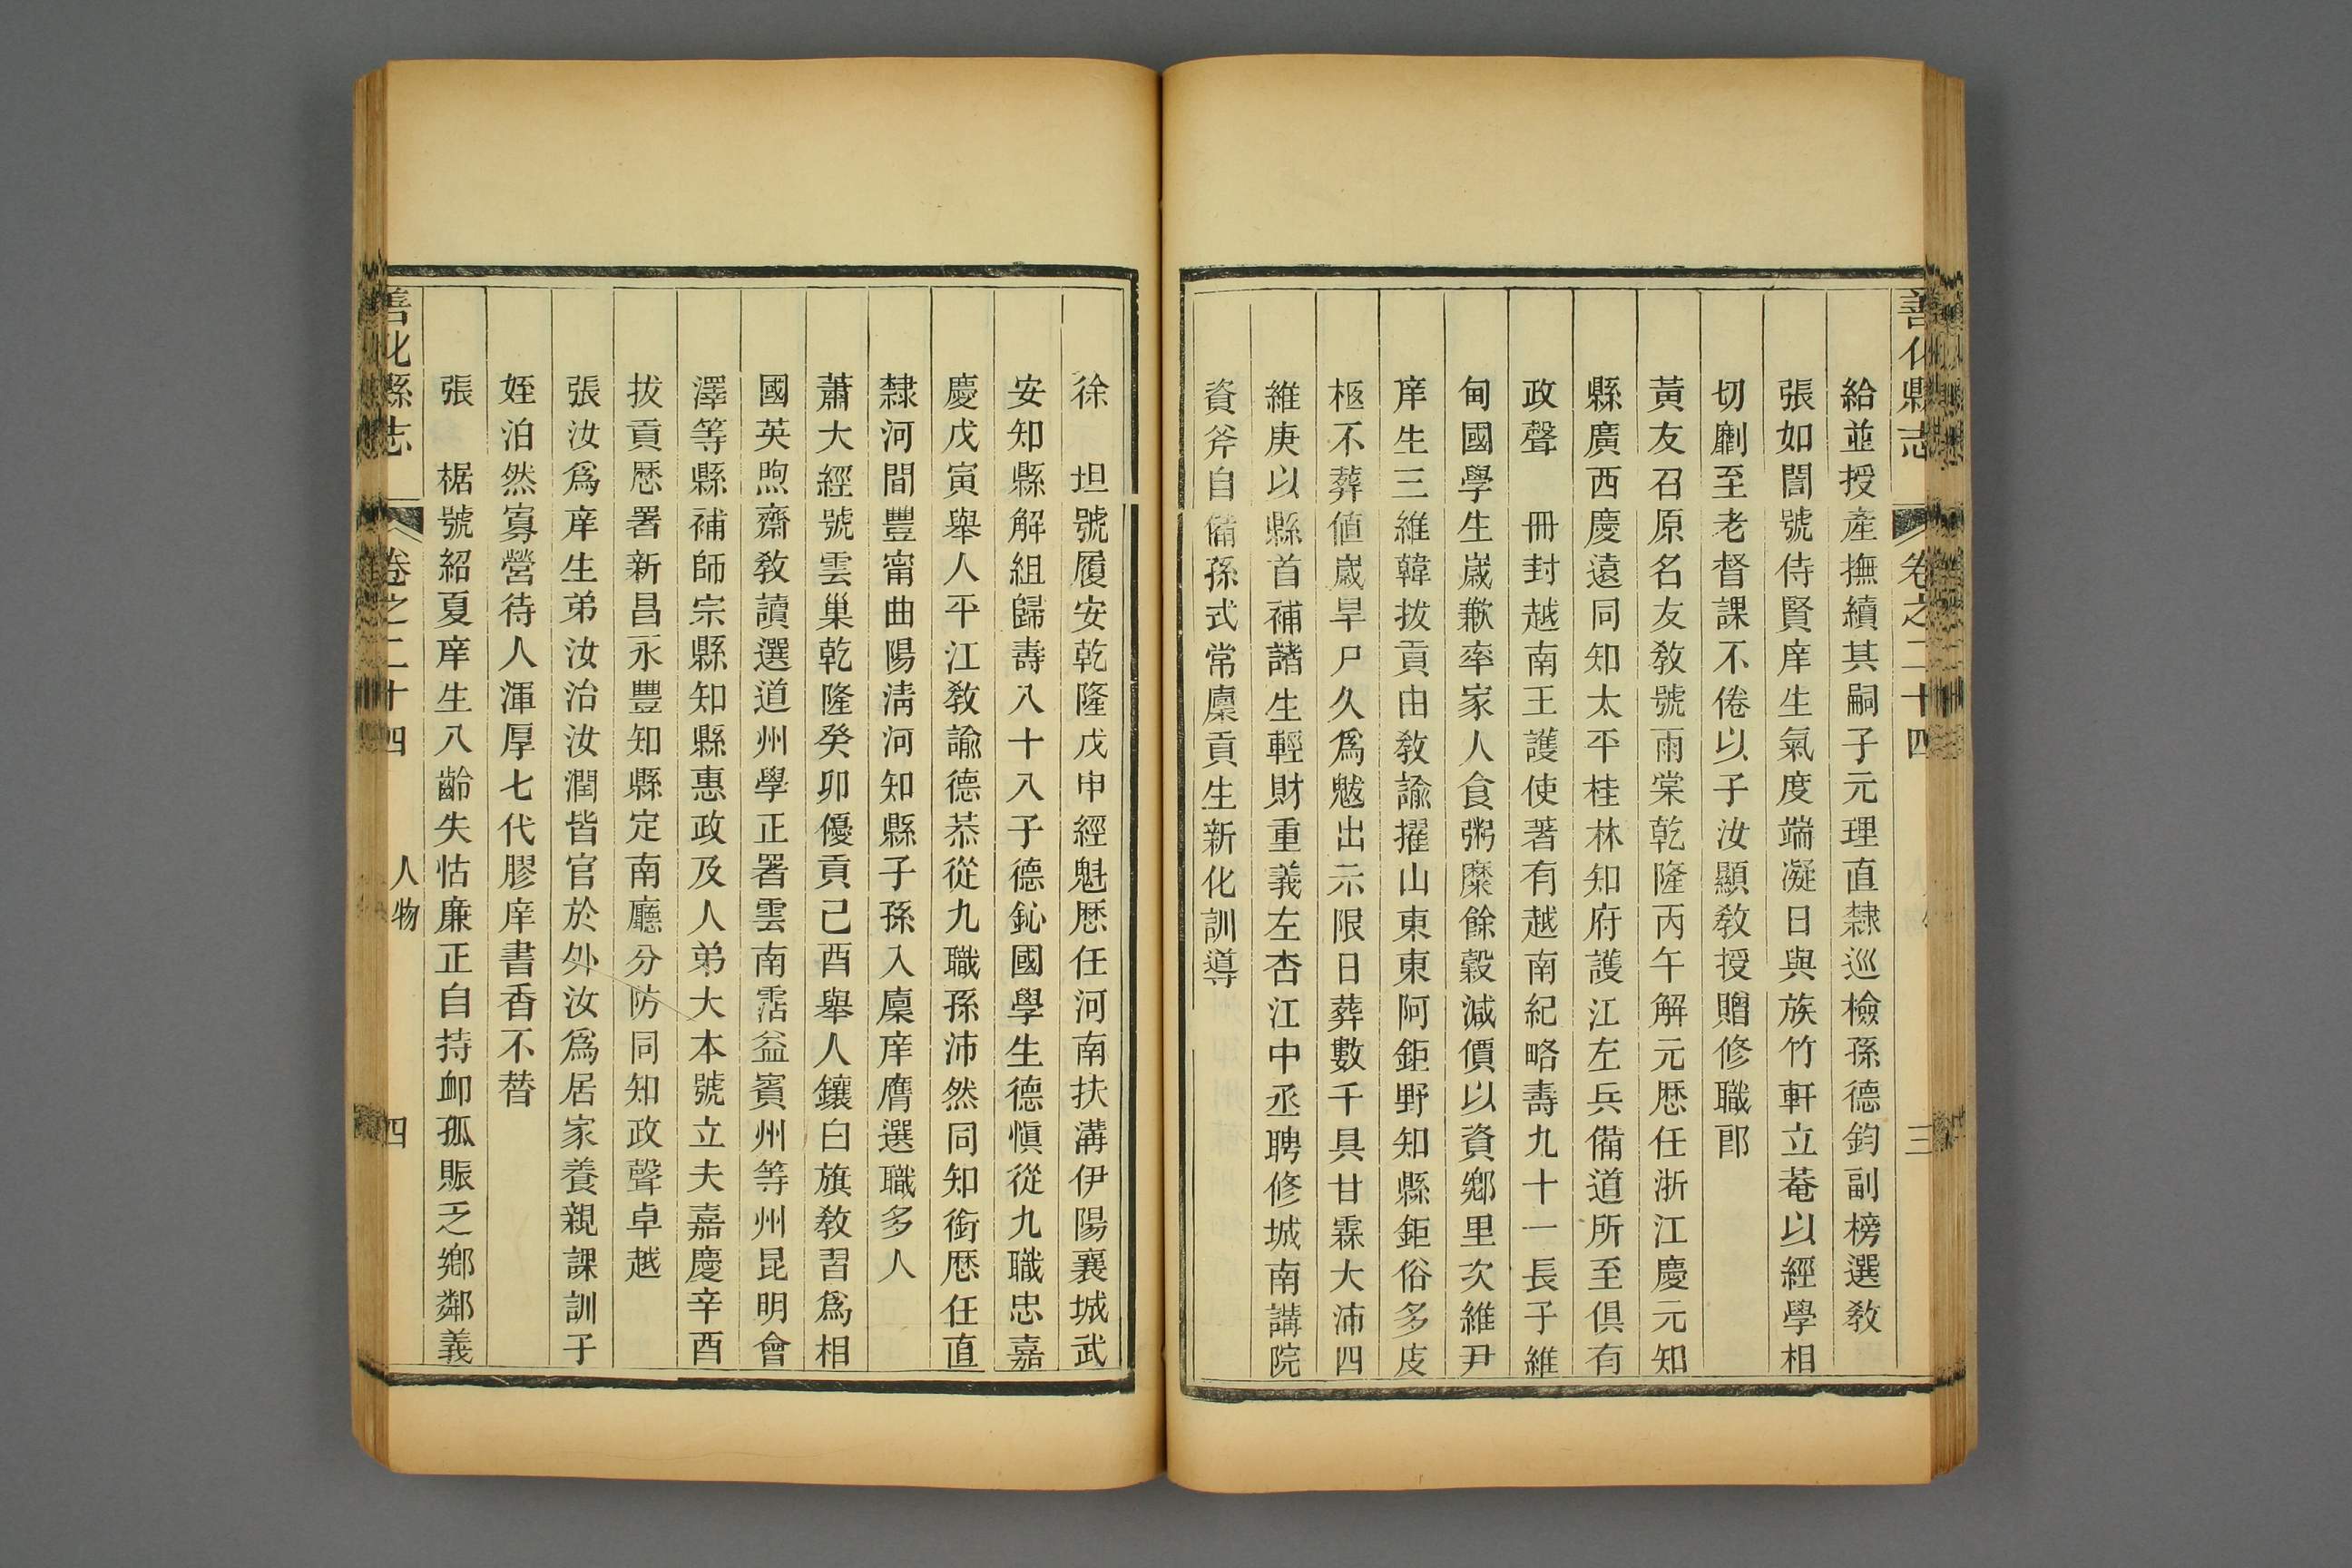 善化縣志 卷之二十四 三
給並授產撫續其嗣子元理直隸巡檢孫德鈞副榜選敎
張如誾號侍賢庠生氣度端凝日與族竹軒立菴以經學相
切劘至老督課不倦以子汝顯敎授贈修職郎
黃友召原名友敎號雨棠乾隆丙午解元歷任浙江慶元知
縣廣西慶遠同知太平桂林知府護江左兵備道所至俱有
政聲 冊封越南王護使著有越南紀略壽九十一長子維
甸國學生歲歉率家人食粥糜餘穀減價以資鄉里次維尹
庠生三維韓拔貢由敎諭擢山東東阿鉅野知縣鉅俗多庋
柩不葬値歲旱尸久爲魃出示限日葬數千具甘霖大沛四
維庚以縣首補諸生輕財重義左杏江中丞聘修城南講院
資斧自備孫式常廩貢生新化訓導
徐 坦號履安乾隆戊申經魁歷任河南扶溝伊陽襄城武
安知縣解組歸壽八十八子德鈊國學生德愼從九職忠嘉
慶戊寅舉人平江敎諭德恭從九職孫沛然同知銜歷任直
隸河間豐甯曲陽淸河知縣子孫入廩庠膺選職多人
蕭大經號雲巢乾隆癸卯優貢己酉舉人鑲白旗敎習爲相
國英煦齋敎讀選道州學正署雲南霑益賓州等州昆明會
澤等縣補師宗縣知縣惠政及人弟大本號立夫嘉慶辛酉
拔貢歷署新昌永豐知縣定南廳分防同知政聲卓越
張汝爲庠生弟汝治汝潤皆官於外汝爲居家養親課訓子
姪泊然寡營待人渾厚七代膠庠書香不替
張 椐號紹夏庠生八齡失怙廉正自持卹孤賑乏鄉鄰義
善化縣志 卷之二十四 人物 四